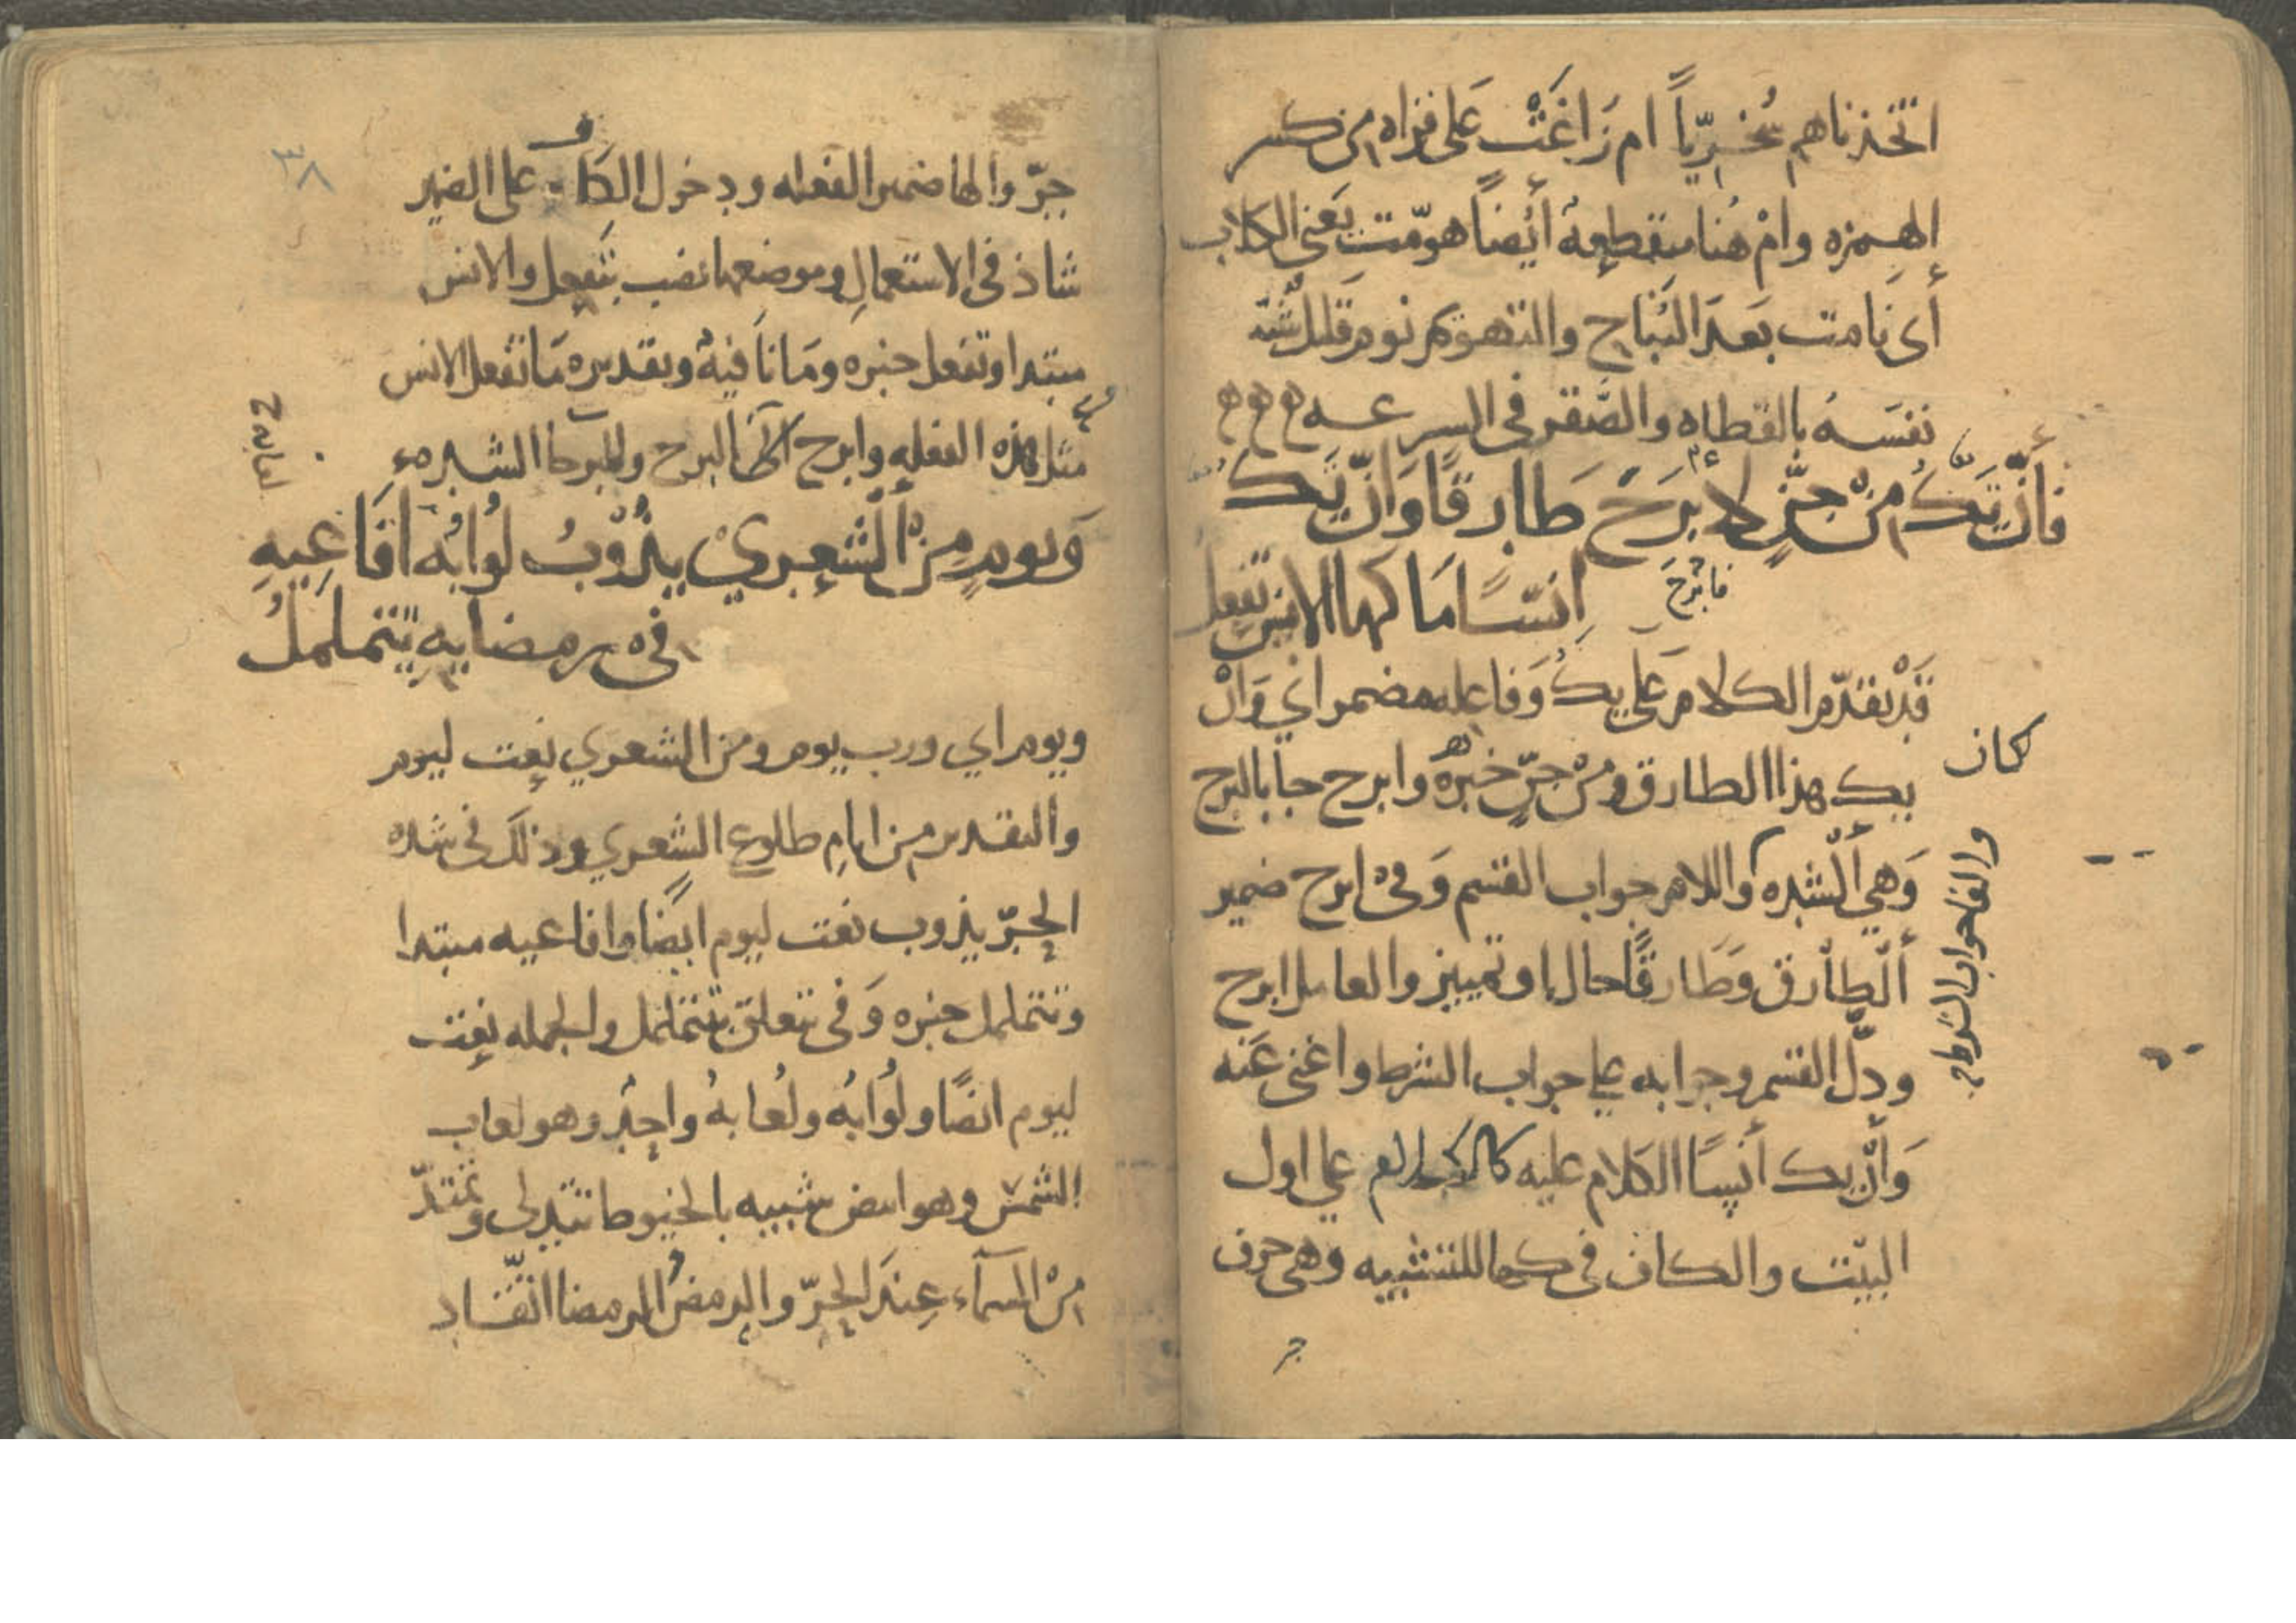 اتّخذناهم سُخريّاً ام زَاغَتْ عَلى قراه من كسر
الهمزه وامْ هُنا منقطعة أيْضاً هوّمت يَعنى الكلاب
أى نَامت بَعدَ النُبَاح والتهويم نوم قليل شبّه
نفسَهُ بالقطاه والصّقر في السرعه ه ه ه
فأنْ يَكُ منْ جنٍّ لابْرَحَ طَارقًا وَانْ يَكُ
فابْرحَ
انسًا مَا كَهَا الانس تفعل
قَدْ تقدّم الكلام عَلى يكُ وَفاعله مضمر اي وَانْ
كان
يك هذا الطارق ومنْ جنٍّ خبرهُ وابرح جا بالبرح
وَهي ألشده واللام جواب القسم وَفى ابرح ضمير
والفا جواب الشرط
ألْطارق وَطَارقًا حال او تمييز والعامل ابرح
ودلّ القسم وجوابه على جواب الشرط واغنى عَنه
وَأنْ يك أنسًا الكَلام عليه كالكلام على اول
البيت والكاف في كها للتشبيه وهي حرف
جر
٣٨
جرّ والها ضمير الفعله ودخول الكاف على الضمير
شاذ في الاستعمالِ وموضعها نصب بتَفعل والانس
مبتدا وتفعل خبره ومَا نَافيةٌ وتقديره مَا تفعل الانس
مثل هذه الفعله وابرح اتَى البرح والبرحا الشده
وَيومٍ منْ ألشعري يذُوْبُ لُوَابُه افَاعيهِ
لعابه خ
في رمضايه تتململُ
ويوم اي ورب يوم ومن الشعري نعت ليوم
والتقدير من ايام طلوع الشعري وذلك في شده
الحرّ يذوب نعت ليوم ايضًا وافاعيه مبتدا
وتتململ خبره وَفي تتعلق بتتململ والجمله نعت
ليوم ايضًا ولُوَابُه ولُعَابهُ واحِدٌ وهو لعاب
الشمس وهو ابيض شبيه بالخيوط تتدلى وتمتدّ
منْ السمآء عِندَ الحرّ والرمضُ الرمضا اتقاد